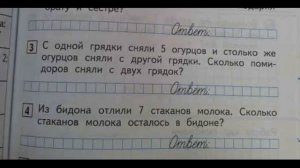 брату и сестре?
Ответ:
3 С одной грядки сняли 5 огурцов и столько же
огурцов сняли с другой грядки. Сколько поми-
доров сняли с двух грядок?
Ответ:
4 Из бидона отлили 7 стаканов молока. Сколько
стаканов молока осталось в бидоне?
Ответ: